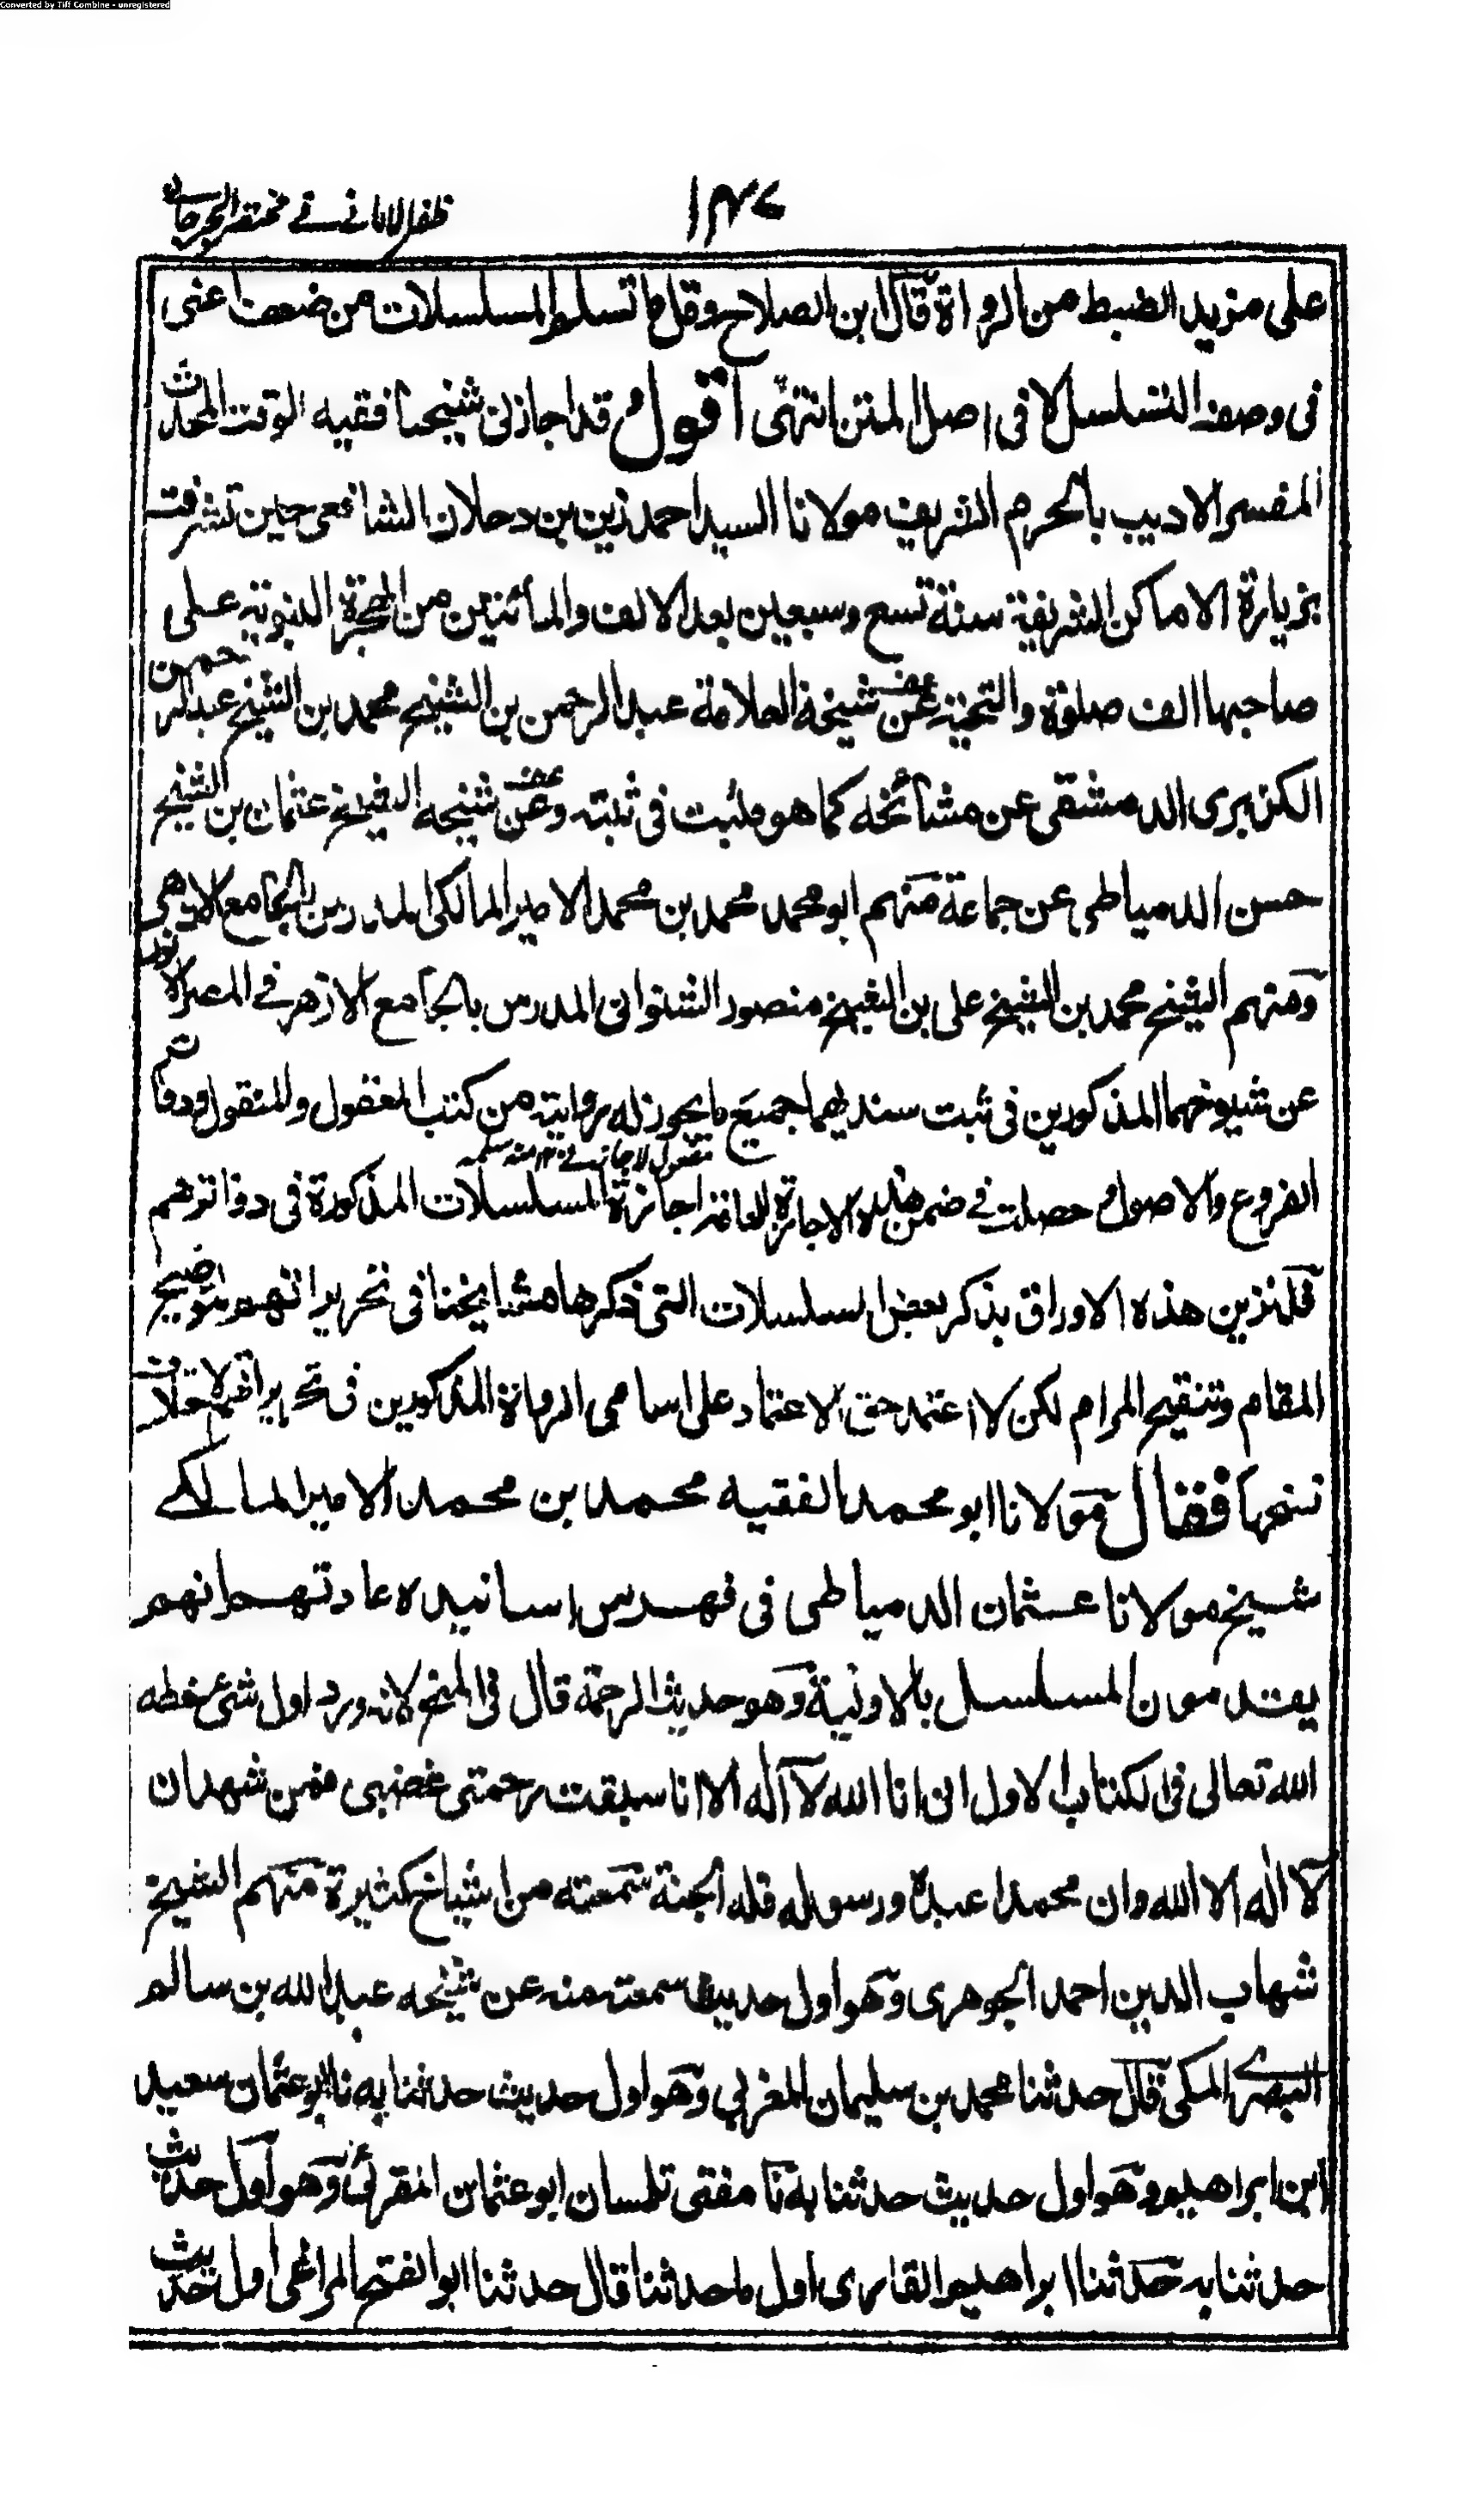 Converted by Tiff Combine - unregistered
ظفر الامانے فے مختصر الجرجانے
١٤٧
على مزيد الضبط من الرواة قال ابن الصلاح وقل ما تسلم المسلسلات من ضعف اعنى
فى وصف التسلسل لا فى اصل المتن انتهى اقول قد اجازنى شيخنا فقيه الوقت المحدث
المفسر الاديب بالحرم الشريف مولانا السيد احمد زين بن دحلان الشافعى حين تشرفت
بزيارة الاماكن الشريفة سنة تسع وسبعين بعد الالف والمائتين من الهجرة النبوية على
صاحبها الف صلوة والتحية عن شيخه العلامة عبد الرحمن بن الشيخ محمد بن الشيخ عبد الرحمن
الكزبرى الدمشقى عن مشائخه كما هو مثبت فى ثبته وعن شيخه الشيخ عثمان بن الشيخ
حسن الدمياطى عن جماعة منهم ابو محمد محمد بن محمد الامير المالكى المدرس بالجامع الازهر
ومنهم الشيخ محمد بن الشيخ على بن الشيخ منصور الشنوانى المدرس بالجامع الازهر فے المصر الانور
عن شيوخهما المذكورين فى ثبت سنديهما جميع ما يجوز له روايته من كتب المعقول والمنقول ودفاتر
الفروع والاصول حصلت فے ضمن هذه الاجازة العامة اجازة المسلسلات المذكورة فى دفاترهم
فلنزين هذه الاوراق بذكر بعض المسلسلات التى ذكرها مشايخنا فى تحريراتهم لتوضيح
المقام وتنقيح المرام لكن لا اعتمد حق الاعتماد على اسامى الرواة المذكورين فى تحريراتهم لاختلاف
نسخها فقال مولانا ابو محمد الفقيه محمد بن محمد الامير المالكے
شيخ مولانا عثمان الدمياطى فى فهرس اسانيده عادتهم انهم
يقدمون المسلسل بالاولية وهو حديث الرحمة قال فى المنح لانه ورد اول شئ خطه
الله تعالى فى الكتاب الاول انى انا الله لا آله الا انا سبقت رحمتى غضبى فمن شهد ان
لا اله الا الله وان محمدا عبده ورسوله فله الجنة سمعته من اشياخ كثيرة منهم الشيخ
شهاب الدين احمد الجوهرى وهو اول حديث سمعته منه عن شيخه عبد الله بن سالم
البصرے المكى قال حدثنا محمد بن سليمان المغربي وهو اول حديث حدثنا به نا ابو عثمان سعيد
ابن ابراهيم وهو اول حديث حدثنا به نا مفتى تلمسان ابو عثمان المقرئ وهو اول حديث
حدثنا به حدثنا ابراهيم القارى اول ما حدثنا قال حدثنا ابو الفتح المراغى اول حديث